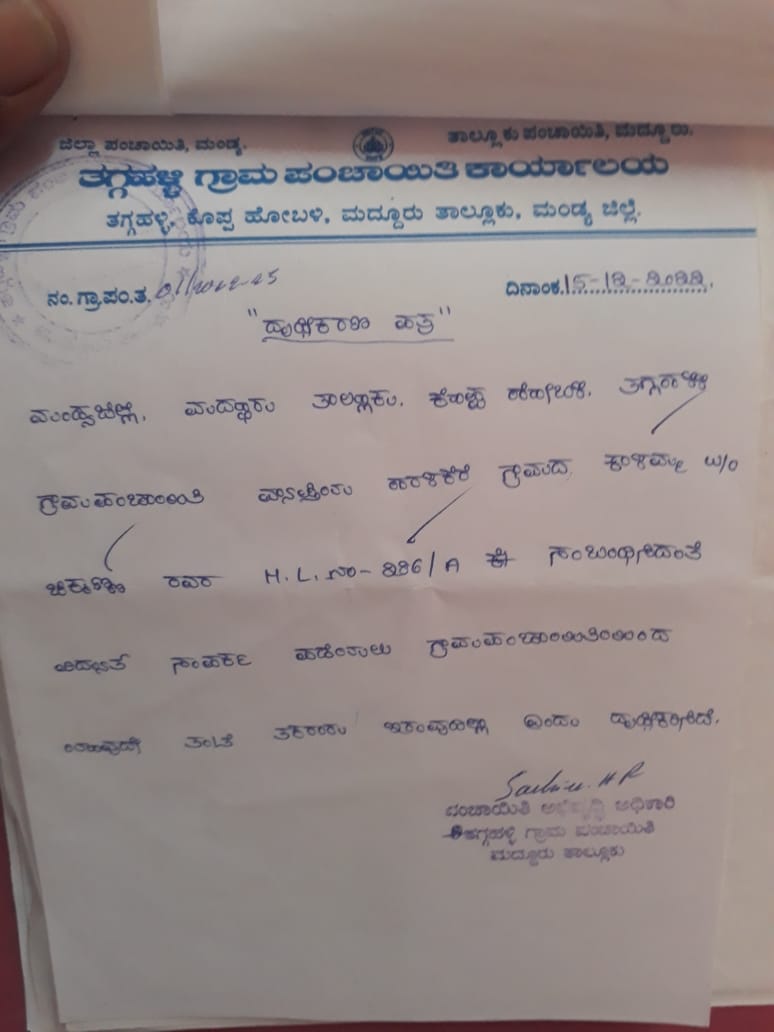 ಜಿಲ್ಲಾ ಪಂಚಾಯಿತಿ, ಮಂಡ್ಯ. ತಾಲ್ಲೂಕು ಪಂಚಾಯಿತಿ, ಮದ್ದೂರು.
ತಗ್ಗಹಳ್ಳಿ ಗ್ರಾಮ ಪಂಚಾಯಿತಿ ಕಾರ್ಯಾಲಯ
ತಗ್ಗಹಳ್ಳಿ, ಕೊಪ್ಪ ಹೋಬಳಿ, ಮದ್ದೂರು ತಾಲ್ಲೂಕು, ಮಂಡ್ಯ ಜಿಲ್ಲೆ.
ನಂ. ಗ್ರಾ.ಪಂ.ತ. ದಿನಾಂಕ.15-12-2022.
"ದೃಢೀಕರಣ ಪತ್ರ"
ಮಂಡ್ಯಜಿಲ್ಲೆ, ಮದ್ದೂರು ತಾಲ್ಲೂಕು, ಕೊಪ್ಪ ಹೋಬಳಿ, ತಗ್ಗಹಳ್ಳಿ
ಗ್ರಾಮಪಂಚಾಯಿತಿ ಗ್ರಾಮದ ಕಾಳಮ್ಮ W/O
ರವರ H.L.ನಂ- 226/A ಕ್ಕೆ ಸಂಬಂಧಿಸಿದಂತೆ
ವಿದ್ಯುತ್ ಸಂಪರ್ಕ ಪಡೆಯಲು ಗ್ರಾಮಪಂಚಾಯಿತಿಯಿಂದ
ಯಾವುದೇ ತಂಟೆ ತಕರಾರು ಇರುವುದಿಲ್ಲ ಎಂದು ದೃಢೀಕರಿಸಿದೆ.
ಪಂಚಾಯಿತಿ ಅಭಿವೃದ್ಧಿ ಅಧಿಕಾರಿ
ತಗ್ಗಹಳ್ಳಿ ಗ್ರಾಮ ಪಂಚಾಯಿತಿ
ಮದ್ದೂರು ತಾಲ್ಲೂಕು